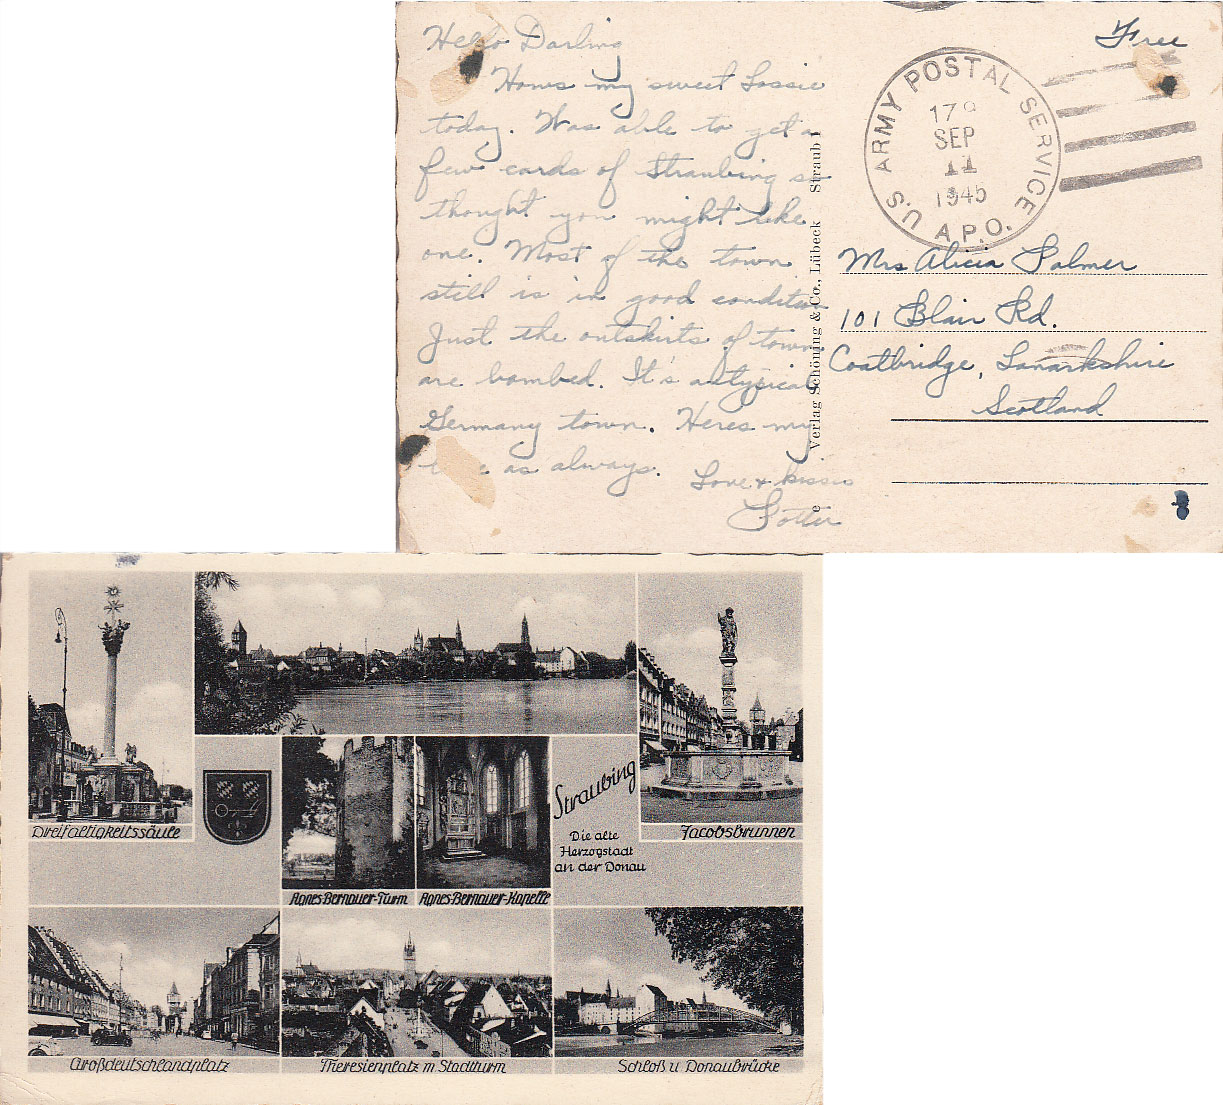 Hello Darling
Hows my sweet Lassie
today. Was able to get a
few cards of Straubing so
thought you might like
one. Most of the town
still is in good condition
Just the outskirts of town
are bombed. It's a typical
Germany town. Heres my
as always. Love & kisses
Verlag Schöning & Co., Lübeck Straub 1
Free
U.S. ARMY POSTAL SERVICE
A.P.O.
SEP
11
1945
Mrs Alicia Palmer
101 Blair Rd.
Coatbridge, Lanarkshire
Scotland
Dreifaltigkeitssäule
Jacobsbrunnen
Straubing
Die alte
Herzogstadt
an der Donau
Agnes-Bernauer-Turm
Agnes-Bernauer-Kapelle
Großdeutschlandplatz
Theresienplatz m Stadtturm
Schloß u Donaubrücke